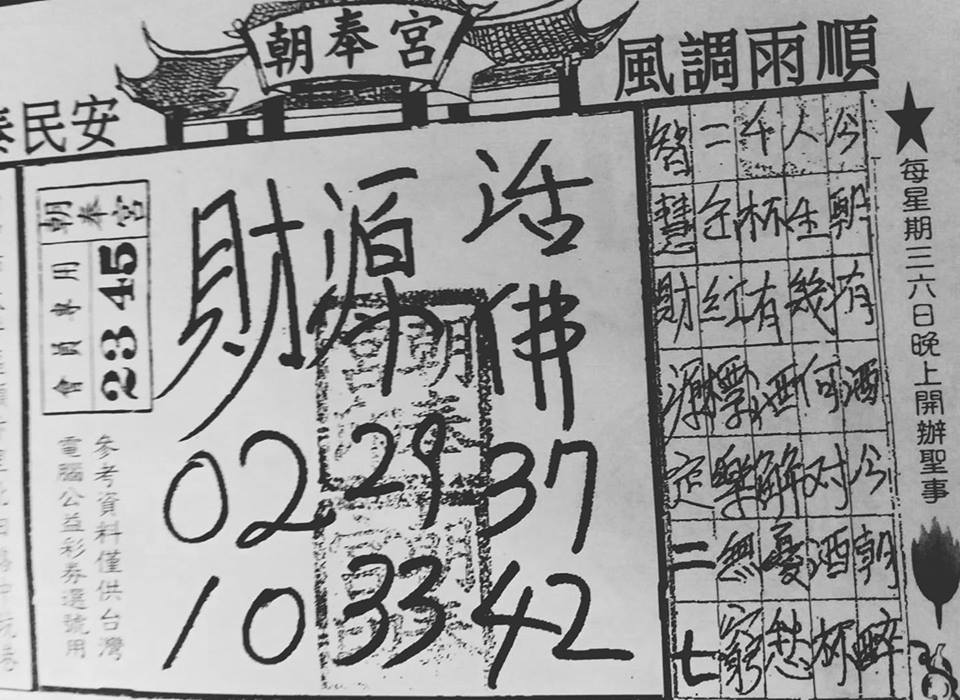 朝奉宮
風調雨順
民安
每星期三六日晚上開辦聖事
今朝有酒今朝醉
人生幾何对酒杯
千杯有酒解憂愁
二仝紅標樂無窮
智慧財源定二七
活佛
財源
02 29 37
10 33 42
朝奉宮
會員專用
2345
參考資料僅供台灣
電腦公益彩券選號用